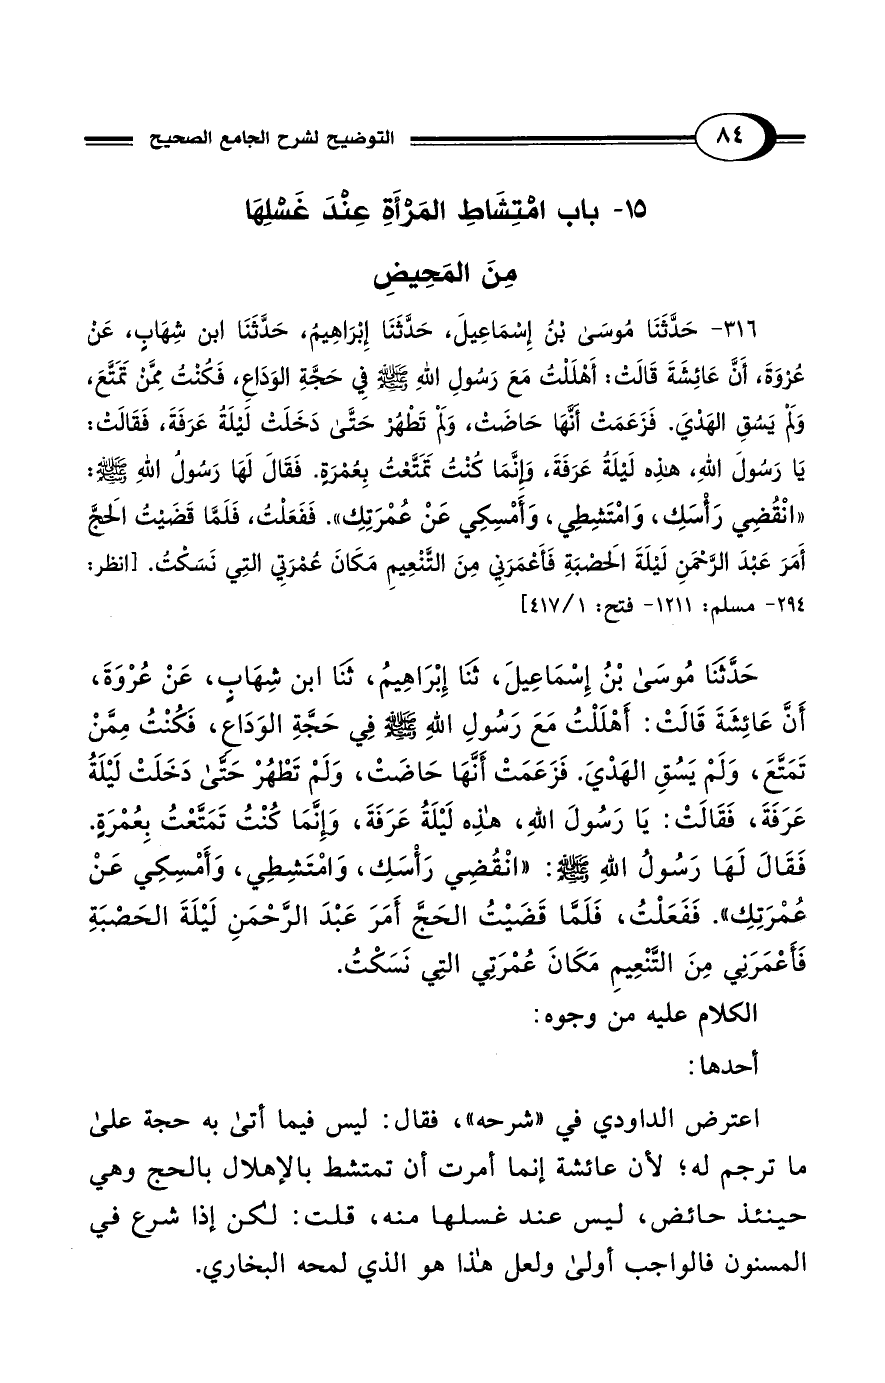 ٨٤ التوضيح لشرح الجامع الصحيح
١٥- باب امْتِشَاطِ المَرْأَةِ عِنْدَ غَسْلِهَا
مِنَ المَحِيضِ
٣١٦- حَدَّثَنَا مُوسَىٰ بْنُ إِسْمَاعِيلَ، حَدَّثَنَا إِبْرَاهِيمُ، حَدَّثَنَا ابن شِهَابٍ، عَنْ
عُرْوَةَ، أَنَّ عَائِشَةَ قَالَتْ: أَهْلَلْتُ مَعَ رَسُولِ اللهِ ﷺ فِي حَجَّةِ الوَدَاعِ، فَكُنْتُ مِمَّنْ تَمَتَّعَ،
وَلَمْ يَسُقِ الهَدْيَ. فَزَعَمَتْ أَنَّهَا حَاضَتْ، وَلَمْ تَطْهُرْ حَتَّىٰ دَخَلَتْ لَيْلَةُ عَرَفَةَ، فَقَالَتْ:
يَا رَسُولَ اللهِ، هذِه لَيْلَةُ عَرَفَةَ، وَإِنَّمَا كُنْتُ تَمَتَّعْتُ بِعُمْرَةٍ. فَقَالَ لَهَا رَسُولُ اللهِ ﷺ:
«انْقُضِي رَأْسَكِ، وَامْتَشِطِي، وَأَمْسِكِي عَنْ عُمْرَتِكِ». فَفَعَلْتُ، فَلَمَّا قَضَيْتُ الَحجَّ
أَمَرَ عَبْدَ الرَّحْمَنِ لَيْلَةَ الَحصْبَةِ فَأَعْمَرَنِي مِنَ التَّنْعِيمِ مَكَانَ عُمْرَتِي التِي نَسَكْتُ. [انظر:
٢٩٤- مسلم: ١٢١١- فتح: ٤١٧/١]
حَدَّثَنَا مُوسَىٰ بْنُ إِسْمَاعِيلَ، ثَنَا إِبْرَاهِيمُ، ثَنَا ابن شِهَابٍ، عَنْ عُرْوَةَ،
أَنَّ عَائِشَةَ قَالَتْ: أَهْلَلْتُ مَعَ رَسُولِ اللهِ ﷺ فِي حَجَّةِ الوَدَاعِ، فَكُنْتُ مِمَّنْ
تَمَتَّعَ، وَلَمْ يَسُقِ الهَدْيَ. فَزَعَمَتْ أَنَّهَا حَاضَتْ، وَلَمْ تَطْهُرْ حَتَّىٰ دَخَلَتْ لَيْلَةُ
عَرَفَةَ، فَقَالَتْ: يَا رَسُولَ اللهِ، هٰذِه لَيْلَةُ عَرَفَةَ، وَإِنَّمَا كُنْتُ تَمَتَّعْتُ بِعُمْرَةٍ.
فَقَالَ لَهَا رَسُولُ اللهِ ﷺ: «انْقُضِي رَأْسَكِ، وَامْتَشِطِي، وَأَمْسِكِي عَنْ
عُمْرَتِكِ». فَفَعَلْتُ، فَلَمَّا قَضَيْتُ الحَجَّ أَمَرَ عَبْدَ الرَّحْمَنِ لَيْلَةَ الحَصْبَةِ
فَأَعْمَرَنِي مِنَ التَّنْعِيمِ مَكَانَ عُمْرَتِي التِي نَسَكْتُ.
الكلام عليه من وجوه:
أحدها:
اعترض الداودي في «شرحه»، فقال: ليس فيما أتىٰ به حجة علىٰ
ما ترجم له؛ لأن عائشة إنما أمرت أن تمتشط بالإهلال بالحج وهي
حينئذ حائض، ليس عند غسلها منه، قلت: لكن إذا شرع في
المسنون فالواجب أولىٰ ولعل هٰذا هو الذي لمحه البخاري.